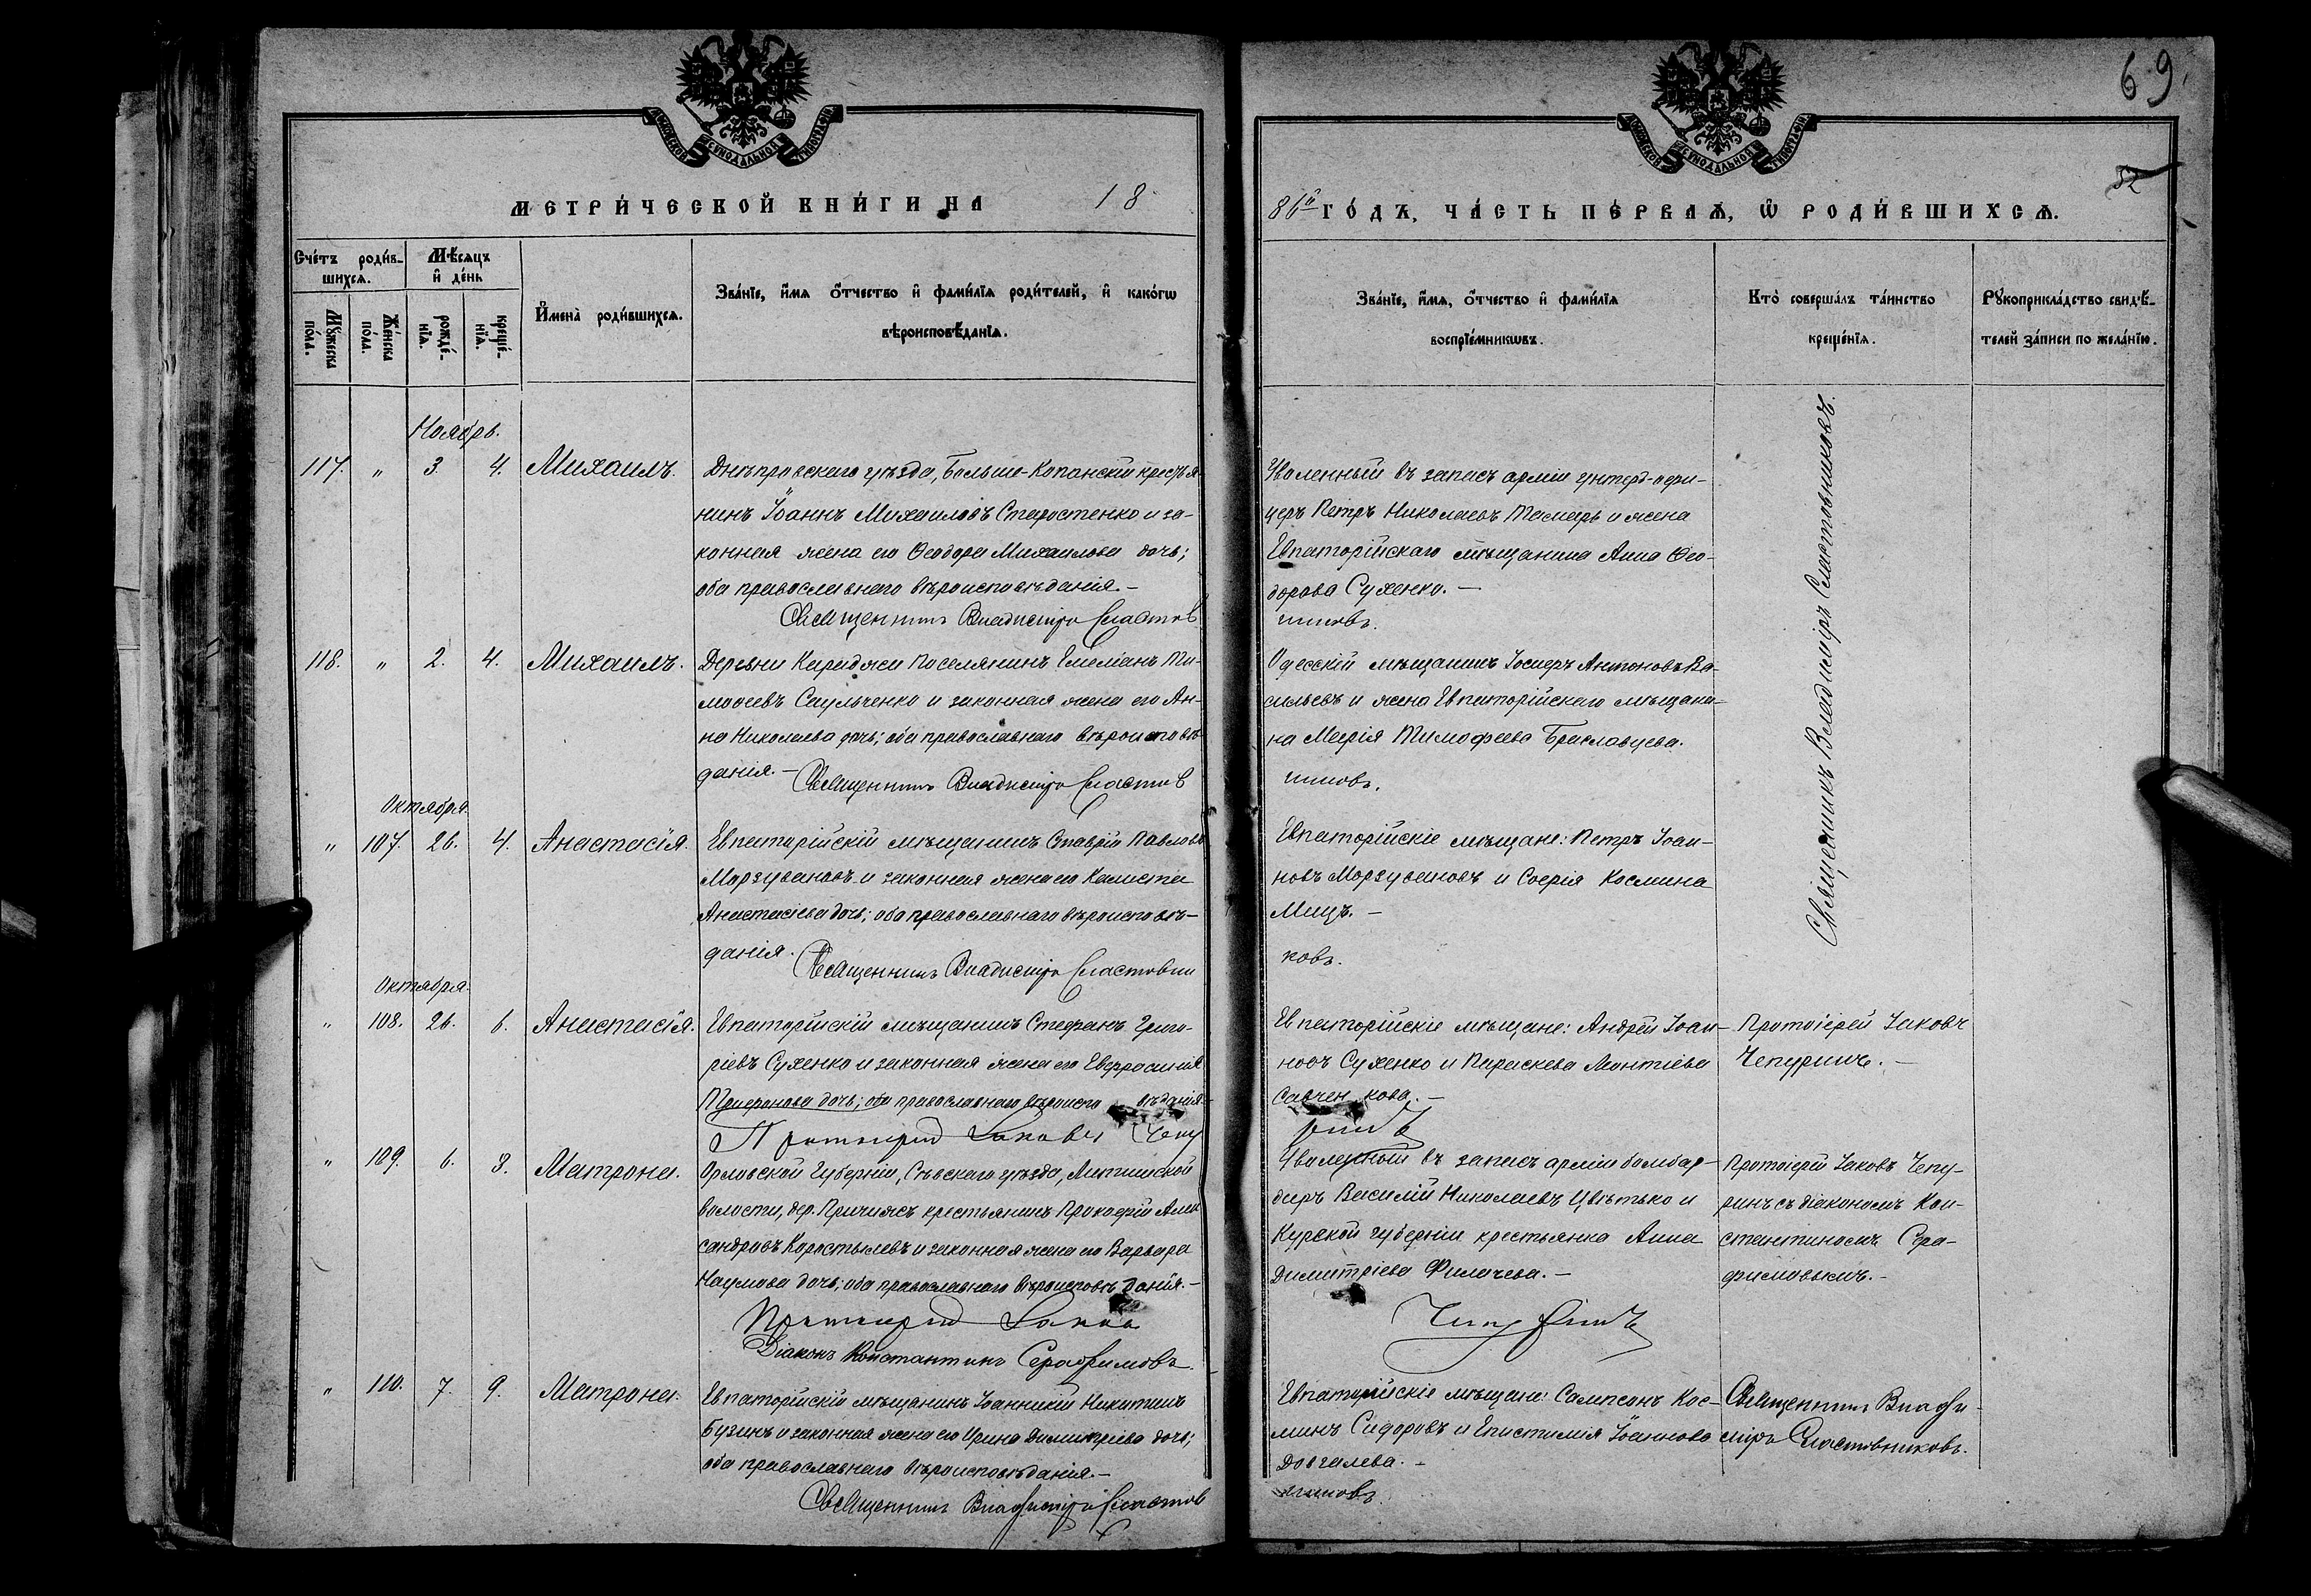 69
52
МОСКОВСКОЙ СѴНОДАЛЬНОЙ ТИПОГРАФІИ
МОСКОВСКОЙ СѴНОДАЛЬНОЙ ТИПОГРАФІИ
МЕТРИ́ЧЕСКОЙ КНИ́ГИ НА 18
86й ГО́ДЪ, ЧА́СТЬ ПЕ́РВАѦ, Ѡ҆ РОДИ́ВШИХСѦ.
Сче́тъ роди́в-
шихсѧ.
Мѣ́сѧцъ
и҆ де́нь
Мꙋ́жеска
по́ла.
Же́нска
по́ла.
рожде́-
нїѧ.
креще́-
нїѧ.
И҆мена̀ роди́вшихсѧ.
Зва́нїе, и҆́мѧ ѻ҆́тчество и҆ фами́лїѧ роди́телей, и҆ како́гѡ
вѣроисповѣ́данїѧ.
Зва́нїе, и҆́мѧ, ѻ҆́тчество и҆ фами́лїѧ
воспрїе́мникѡвъ.
Кто̀ соверша́лъ та́инство
креще́нїѧ.
Рꙋкоприкла́дство свидѣ́-
телей за́писи по жела́нїю.
Ноябрь.
117. " 3. 4. Михаилъ.
Днѣпровскаго уѣзда, Больше-Копанскій крестья-
нинъ Іоаннъ Михаиловъ Старостенко и за-
конная жена его Ѳеодора Михаилова дочь;
оба православнаго вѣроисповѣданія.-
Священникъ Владиміръ Сластов
Уволенный въ запасъ арміи унтеръ-офи-
церъ Петръ Николаевъ Тамаръ и жена
Евпаторійскаго мѣщанина Анна Ѳео-
дорова Сухенко.-
никовъ.
Священникъ Владиміръ Сластовниковъ.
118. " 2. 4. Михаилъ.
Деревни Караджи поселянинъ Емеліанъ Ти-
моѳеевъ Саульченко и законная жена его Ан-
на Николаева дочь; оба православнаго вѣроисповѣ
данія.-
Священникъ Владиміръ Сластов
Одесскій мѣщанинъ Іосифъ Антоновъ Ва-
сильевъ и жена Евпаторійскаго мѣщани-
на Марія Тимофеева Браславцева.
никовъ.
Октября.
" 107. 26. 4. Анастасія.
Евпаторійскій мѣщанинъ Ставрій Павловъ
Моргувановъ и законная жена его Калиста
Анастасіева дочь; оба православнаго вѣроисповѣ-
данія.
Священникъ Владиміръ Сластовни
Евпаторійскіе мѣщане: Петръ Іоан-
новъ Моргувановъ и Софія Космина
Мицъ.-
ковъ.
Октября.
" 108. 26. 6. Анастасія.
Евпаторійскій мѣщанинъ Стефанъ Григо-
ріевъ Сухенко и законная жена его Евфросинія
Трифонова дочь; оба православнаго вѣроиспо вѣданія.-
Протоіерей Іаковъ Чепу
Евпаторійскіе мѣщане: Андрей Іоан-
новъ Сухенко и Параскева Монтіева
Савчен кова.-
ринъ
Протоіерей Іаковъ
Чепуринъ.-
" 109. 6. 8. Матрона.
Орловской Губерніи, Сѣвскаго уѣзда, Литижской
волости, дер. Причижъ крестьянинъ Прокофій Алек
сандровъ Коростылевъ и законная жена его Варвара
Наумова дочь; оба православнаго вѣроисповѣданія.-
Протоіерей Іаковъ
Діаконъ Константинъ Серафимовъ.
Уволенный въ запасъ арміи бомбар-
диръ Василій Николаевъ Цвѣтько и
Курской губерніи крестьянка Анна
Димитріева Филачева.-
Чепуринъ
Протоіерей Іаковъ Чепу-
ринъ съ діакономъ Кон-
стантиномъ Сера-
фимовымъ.-
" 110. 7. 9. Матрона.
Евпаторійскій мѣщанинъ Іоанникій Никитинъ
Бузинъ и законная жена его Ирина Димитріева дочь;
оба православнаго вѣроисповѣданія.-
Священникъ Владиміръ Сластов
Евпаторійскіе мѣщане: Сампсонъ Кос-
минъ Сидоровъ и Епистимія Іоаннова
Довгалева.-
никовъ.
Священникъ Влади-
міръ Сластовниковъ.